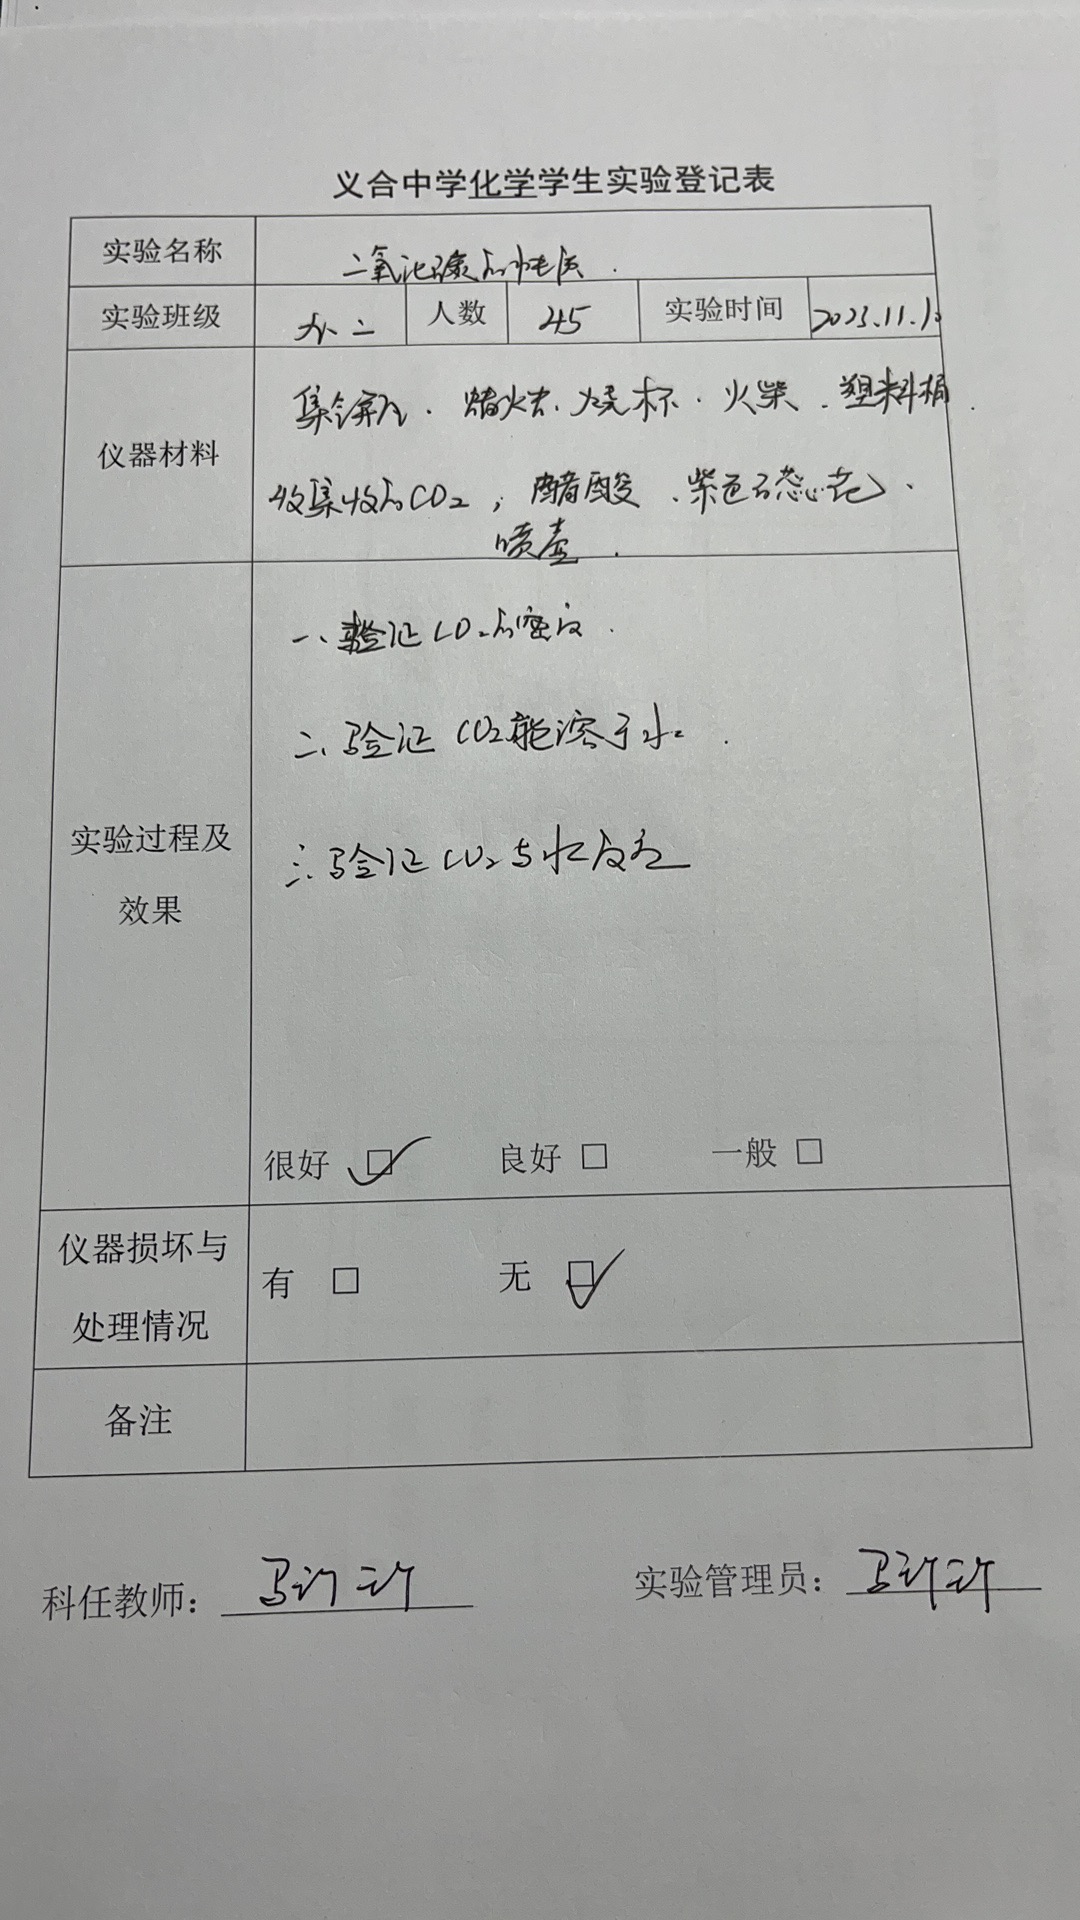 义合中学化学学生实验登记表
实验名称 二氧化碳的性质.
实验班级 九、二 人数 45 实验时间 2023.11.
仪器材料
集气瓶、蜡烛、烧杯、火柴、塑料桶、
收集 的CO2, 醋酸、紫色石蕊 、
喷壶.
一、验证CO2的密度.
二、验证CO2能溶于水.
三、验证CO2与水反应
实验过程及
效果
很好 □✓ 良好 □ 一般 □
仪器损坏与
处理情况
有 □ 无 □✓
备注
科任教师: 实验管理员: